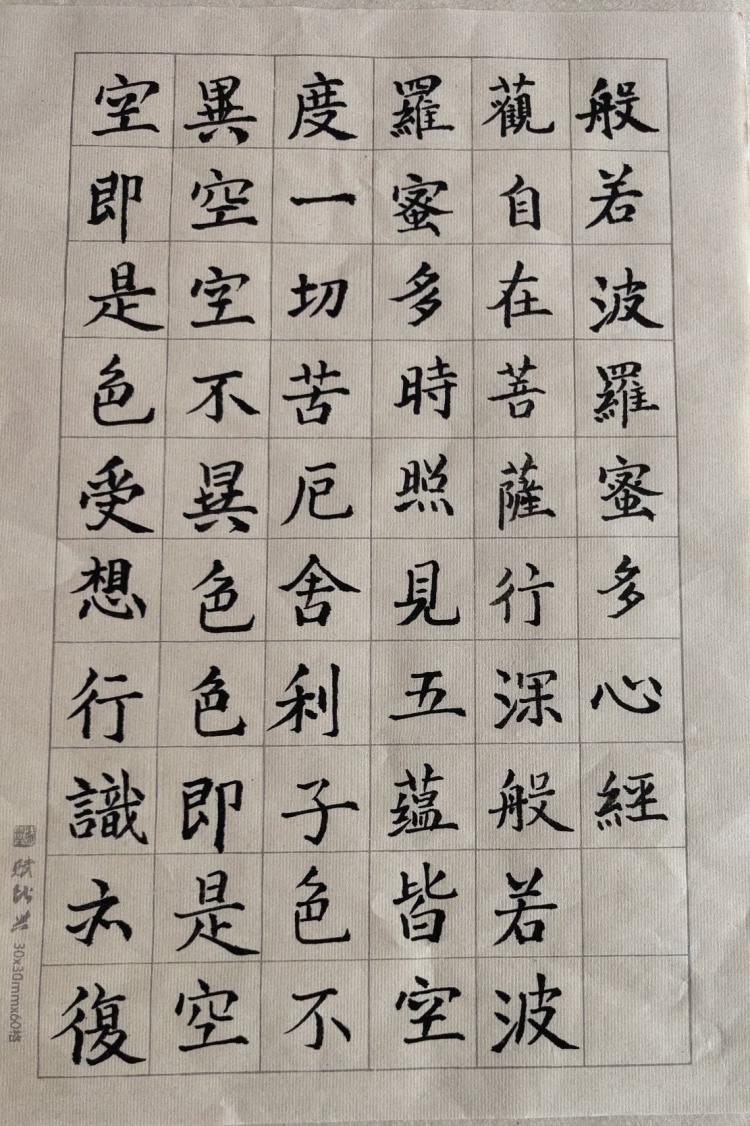 般若波羅蜜多心經
觀自在菩薩行深般若波
羅蜜多時照見五蘊皆空
度一切苦厄舍利子色不
異空空不異色色即是空
空即是色受想行識亦復
30x30mmx60格